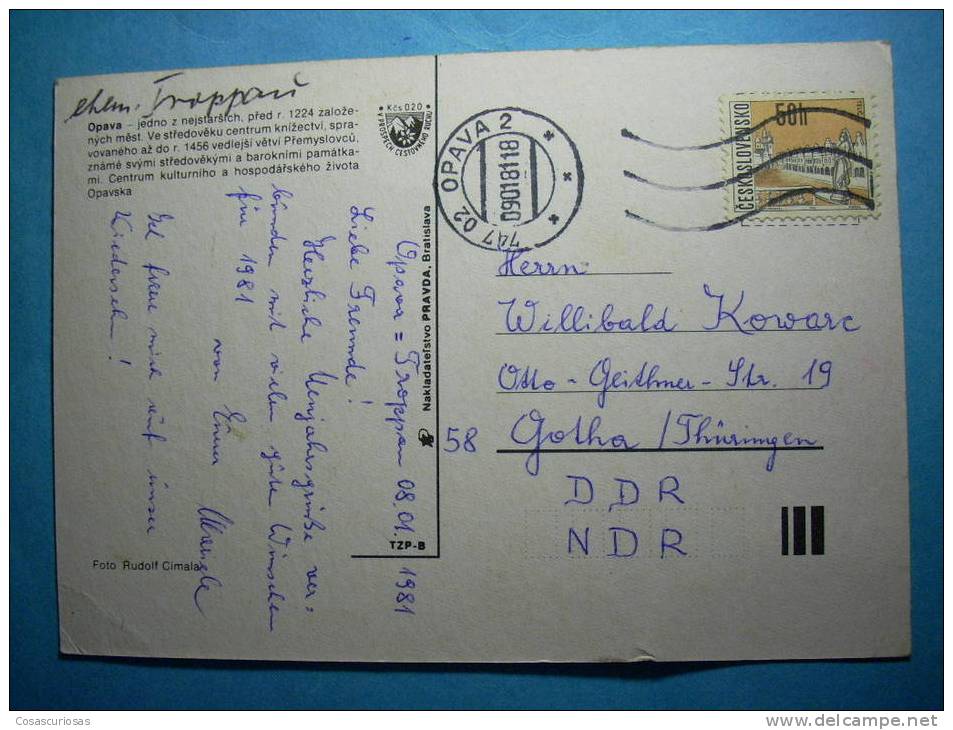 ehem. Troppau
Opava – jedno z nejstarších, před r. 1224 založe-
ných měst. Ve středověku centrum knížectví, spra-
vovaného až do r. 1456 vedlejší větví Přemyslovců,
známé svými středověkými a barokními památka-
mi. Centrum kulturního a hospodářského života
Opavska
Kčs 0,20
V PROSPĚCH CESTOVNÍHO RUCHU
747 02 OPAVA 2
090181 18
ČESKOSLOVENSKO
50h
Opava = Troppau 08.01. 1981
Liebe Freunde!
Herzliche Neujahrsgrüße ver=
bünden mit vielen gute Wünschen
für 1981
von Euer
Ich freue mich auf unser
Wiedersehen!
Nakladatelství PRAVDA, Bratislava
TZP-B
Foto Rudolf Cimala
Herrn
Willibald Kowarc
Otto-Geithner-Str. 19
58 Gotha /Thüringen
DDR
NDR
Cosascuriosas
www.delcampe.net